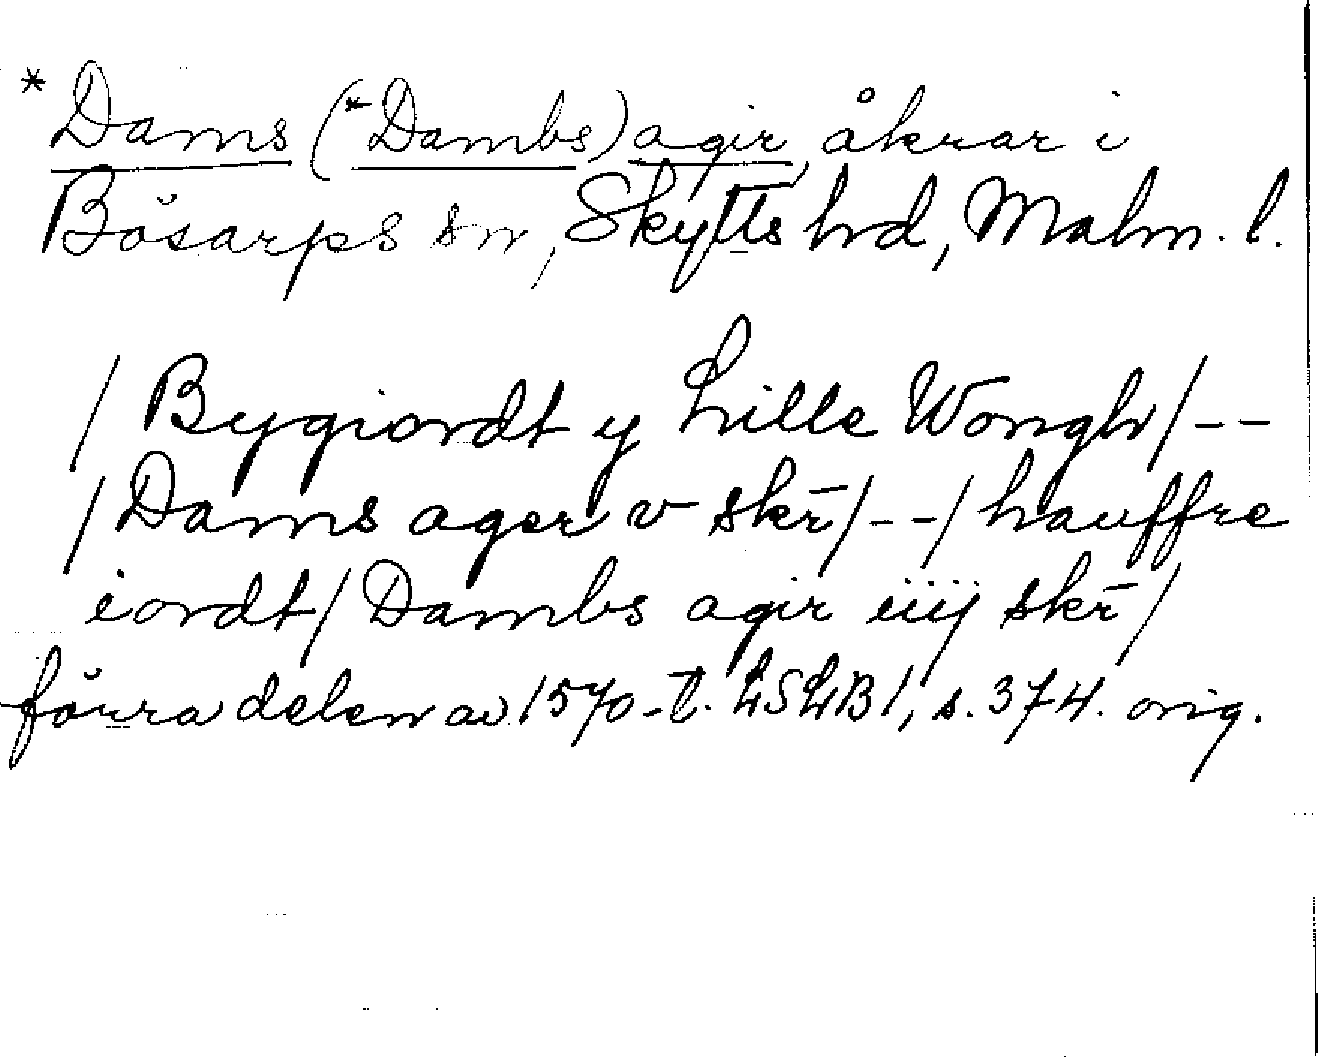 *Dams (*Dambs) agir, åkrar i
Bösarps sn, Skytts hd, Malm. l.
/ Bygiordt y Lille Wongh / - -
/ Dams ager v skr̄ / - - / hauffre
iordt / Dambs agir iiij skr̄ /
förra delen av 1570-t. LSLB 1, s. 374. orig.